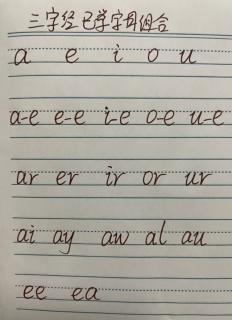 三字经已学字母组合
a e i o u
a-e e-e i-e o-e u-e
ar er ir or ur
ai ay aw al au
ee ea